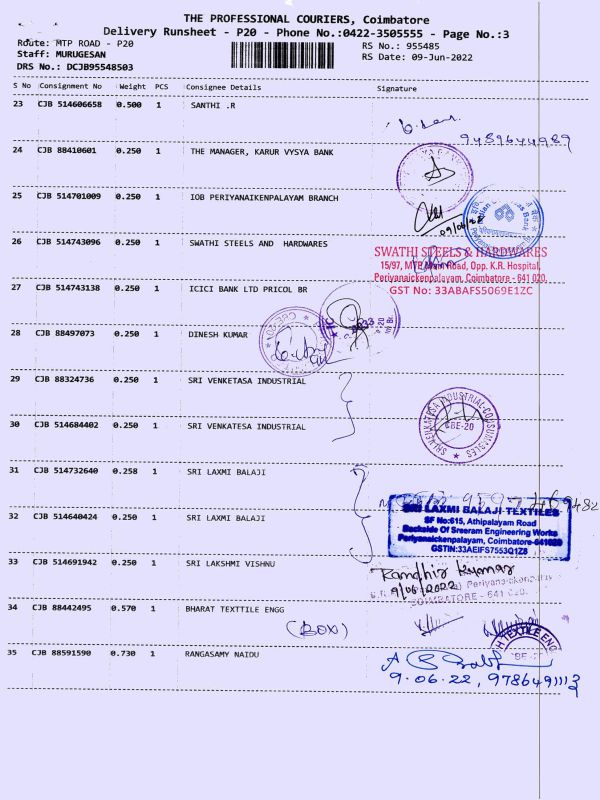 THE PROFESSIONAL COURIERS, Coimbatore
Delivery Runsheet - P20 - Phone No.:0422-3505555 - Page No.:3
Route: MTP ROAD - P20
RS No.: 955485
Staff: MURUGESAN
RS Date: 09-Jun-2022
DRS No.: DCJB95548503
S No Consignment No Weight PCS Consignee Details Signature
23 CJB 514606658 0.500 1 SANTHI .R
9489644989
24 CJB 88410601 0.250 1 THE MANAGER, KARUR VYSYA BANK
25 CJB 514701009 0.250 1 IOB PERIYANAIKENPALAYAM BRANCH
26 CJB 514743096 0.250 1 SWATHI STEELS AND HARDWARES
SWATHI STEELS & HARDWARES
15/97, MTP Main Road, Opp. K.R. Hospital,
Periyanaickenpalayam, Coimbatore - 641 020.
GST No: 33ABAFS5069E1ZC
27 CJB 514743138 0.250 1 ICICI BANK LTD PRICOL BR
28 CJB 88497073 0.250 1 DINESH KUMAR
29 CJB 88324736 0.250 1 SRI VENKETASA INDUSTRIAL
30 CJB 514684402 0.250 1 SRI VENKATESA INDUSTRIAL
CBE-20
31 CJB 514732640 0.258 1 SRI LAXMI BALAJI
32 CJB 514640424 0.250 1 SRI LAXMI BALAJI
SRI LAXMI BALAJI TEXTILES
SF No:615, Athipalayam Road
Backside Of Sreeram Engineering Works
Periyanaickenpalayam, Coimbatore-641020
GSTIN:33AEIFS7553Q1Z8
33 CJB 514691942 0.250 1 SRI LAKSHMI VISHNU
Randhir Kumar
9/06/2022
COIMBATORE - 641 020.
34 CJB 88442495 0.570 1 BHARAT TEXTTILE ENGG
(BOX)
35 CJB 88591590 0.730 1 RANGASAMY NAIDU
9.06.22, 9786491113